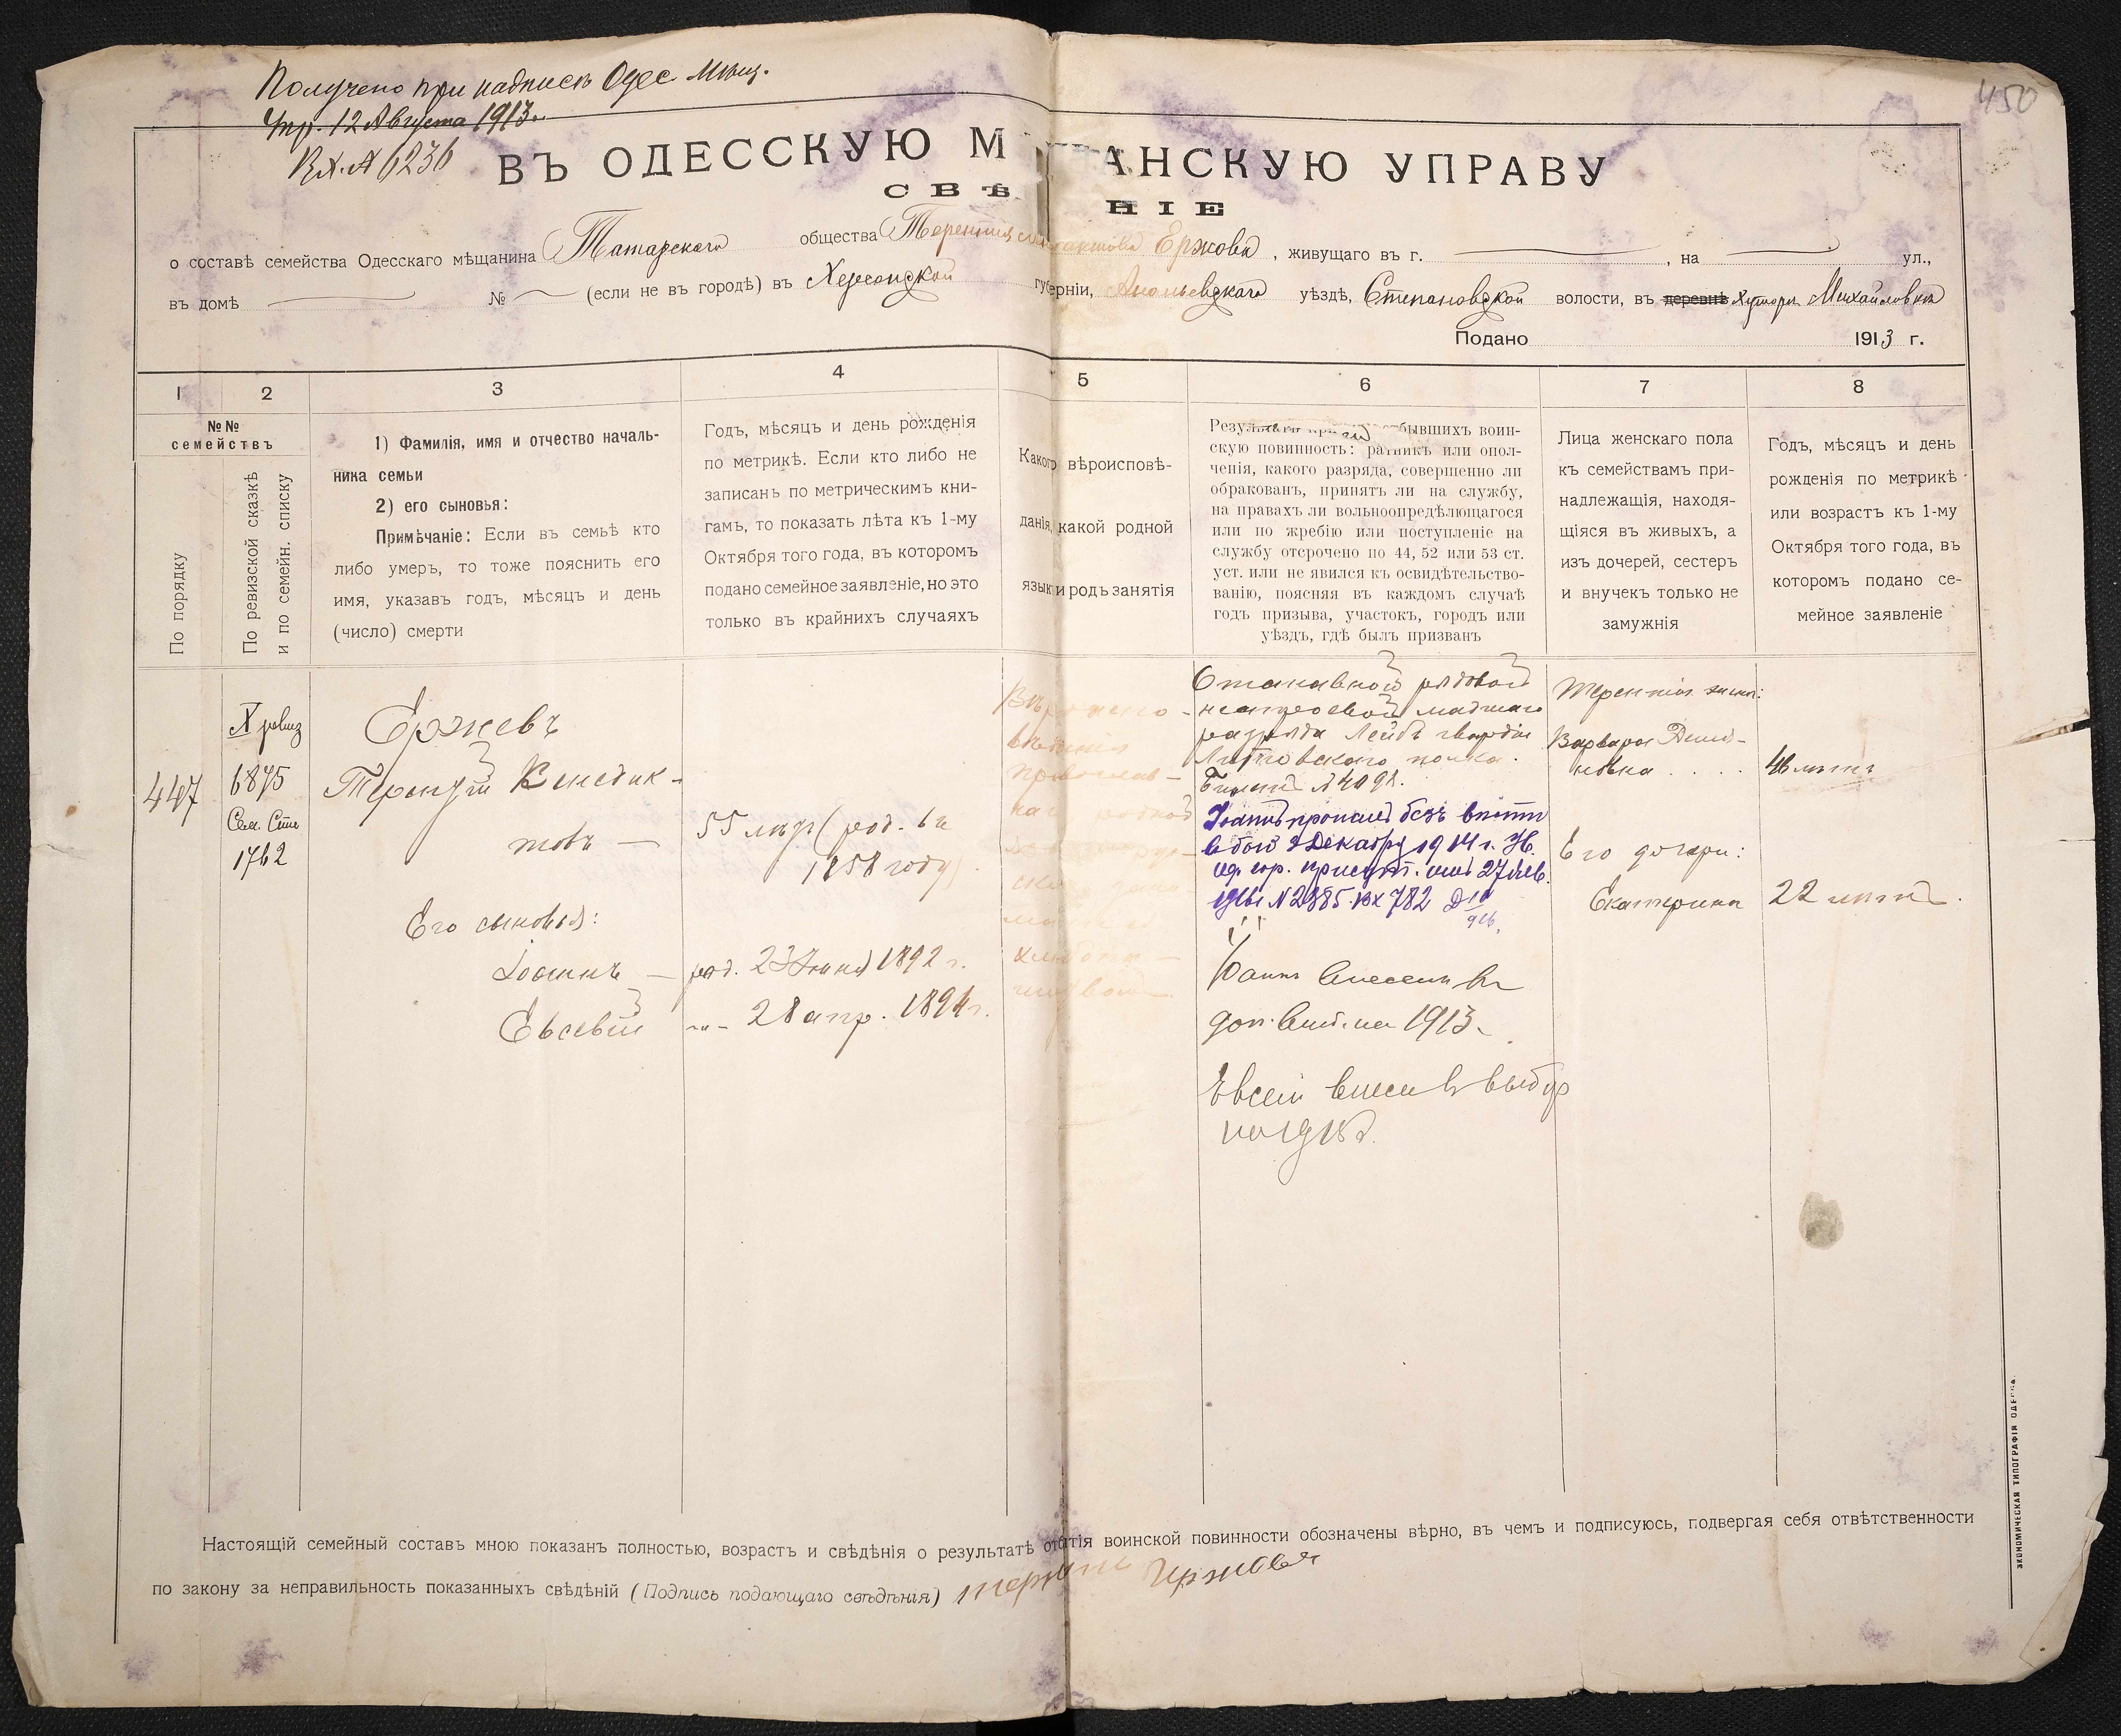 450
Получено при надписи Одес. Мѣщ.
Упр. 12 Августа 1913 г.
Вх. № 6236
ВЪ ОДЕССКУЮ М АНСКУЮ УПРАВУ
СВѢ НІЕ
о составѣ семейства Одесскаго мѣщанина Татарскаго общества Терентія Ержова, живущаго въ г. , на ул.,
въ домѣ № (если не въ городѣ) въ Херсонской губерніи, Ананьевскаго уѣздѣ, Степановской волости, въ деревнѣ хуторѣ Михайловкѣ
Подано 1913 г.
1 2 3 4 5 6 7 8
№№
семействъ
По порядку
По ревизской сказкѣ
и по семейн. списку
1) Фамилія, имя и отчество началь-
ника семьи
2) его сыновья:
Примѣчаніе: Если въ семьѣ кто
либо умеръ, то тоже пояснить его
имя, указавъ годъ, мѣсяцъ и день
(число) смерти
Годъ, мѣсяцъ и день рожденія
по метрикѣ. Если кто либо не
записанъ по метрическимъ кни-
гамъ, то показать лѣта къ 1-му
Октября того года, въ которомъ
подано семейное заявленіе, но это
только въ крайнихъ случаяхъ
Какого вѣроисповѣ-
данія, какой родной
языкъ и родъ занятія
бывшихъ воин-
скую повинность: ратникъ или опол-
ченія, какого разряда, совершенно ли
обракованъ, принятъ ли на службу,
на правахъ ли вольноопредѣлющагося
или по жребію или поступленіе на
службу отсрочено по 44, 52 или 53 ст.
уст. или не явился къ освидѣтельство-
ванію, поясняя въ каждомъ случаѣ
годъ призыва, участокъ, городъ или
уѣздъ, гдѣ былъ призванъ
Лица женскаго пола
къ семействамъ при-
надлежащія, находя-
щіяся въ живыхъ, а
изъ дочерей, сестеръ
и внучекъ только не
замужнія
Годъ, мѣсяцъ и день
рожденія по метрикѣ
или возрастъ къ 1-му
Октября того года, въ
которомъ подано се-
мейное заявленіе
447
X ревиз
6875
Сем. Спис
1762
Ержевъ
Терентій Венедик-
товъ —
Его сыновья:
Іоаннъ —
Евсевій
55 лѣтъ (род. въ
1858 году)
род. 23 Іюня 1892 г.
-„- 28 апр. 1894 г.
вѣданія
православ-
наго родной
хлѣбопа-
Отставной рядовой
нестроевой младшаго
разряда Лейбъ гвардіи
Литовскаго полка.
Билетъ №
Іоаннъ пропалъ безъ вѣсти
въ бою 2 Декабря 1914 г.
27 Янв.
№ 2885 Вх 782
Іоаннъ внесенъ въ
1913 г.
Евсей внесен в выбор
на 1915 г.
Терентія жена:
Варвара
46 лѣтъ
Его дочери:
Екатерина 22 лѣтъ.
Настоящій семейный составъ мною показанъ полностью, возрастъ и свѣдѣнія о результатѣ отбытія воинской повинности обозначены вѣрно, въ чемъ и подписуюсь, подвергая себя отвѣтственности
по закону за неправильность показанныхъ свѣдѣній (Подпись подающаго свѣдѣнія)
ЭКОНОМИЧЕСКАЯ ТИПОГРАФІЯ ОДЕССА.